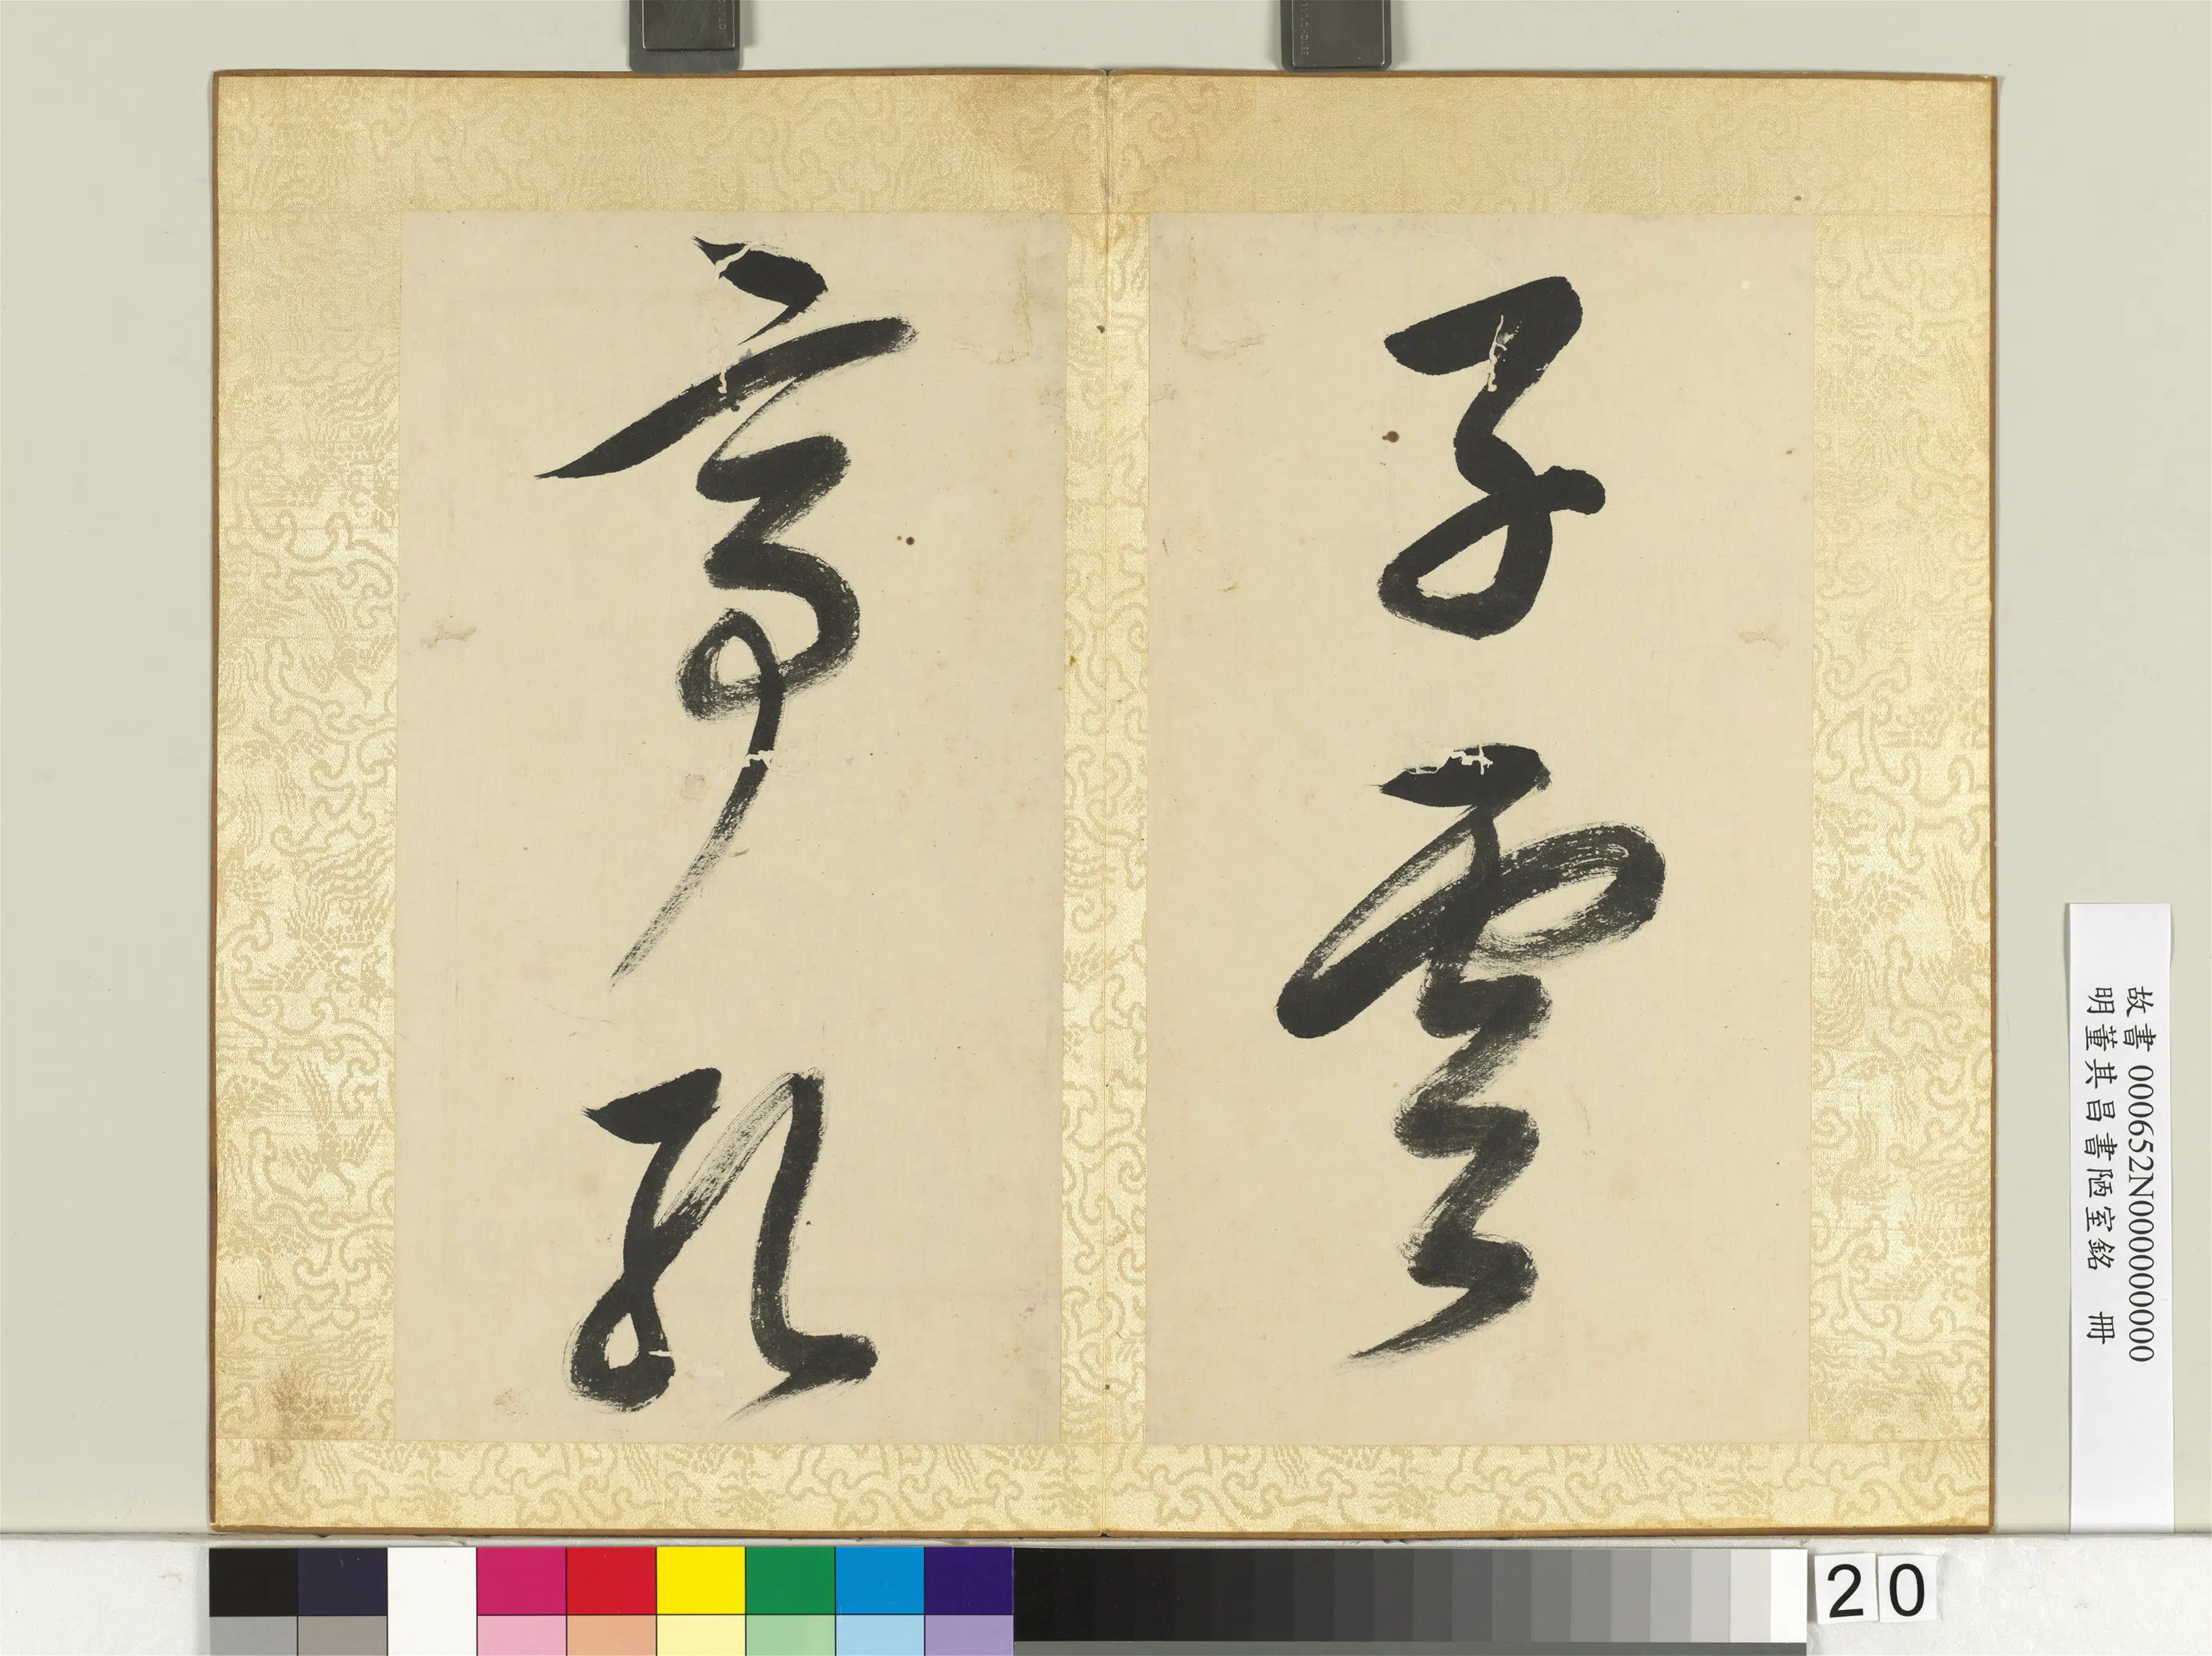 子雲
亭孔
故書 000652N000000000
明董其昌書陋室銘 冊
20